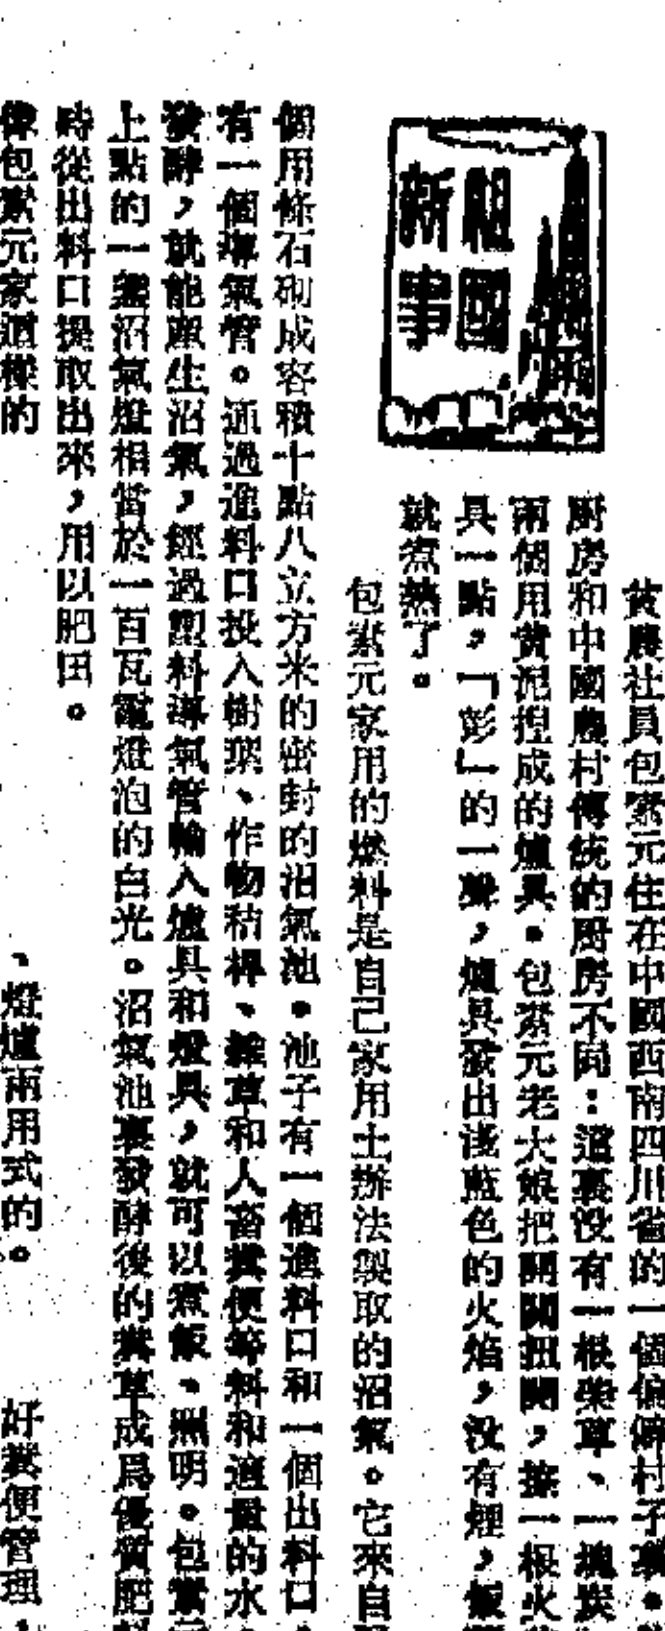 祖國
新事
貧農社員包素元住在中國西南四川省的一個偏僻村子裏。
厨房和中國農村傳統的厨房不同：這裏没有一根柴草、一塊炭
兩個用黄泥捏成的爐具。包素元老大娘把開關扭開，擦一根火
具一點，「彭」的一聲，爐具發出淺藍色的火焰，没有煙，飯
就煮熟了。
包素元家用的燃料是自己家用土辦法製取的沼氣。它來自
個用條石砌成容積十點八立方米的密封的沼氣池。池子有一個進料口和一個出料口，
有一個導氣管。通過進料口投入樹葉、作物秸稈、雜草和人畜糞便等料和適量的水，
發酵，就能產生沼氣，經過塑料導氣管輸入爐具和燈具，就可以煮飯、照明。包素元
上點的一盞沼氣燈相當於一百瓦電燈泡的白光。沼氣池裏發酵後的糞草成爲優質肥料
時從出料口提取出來，用以肥田。
像包素元家這樣的
、燈爐兩用式的。
好糞便管理，